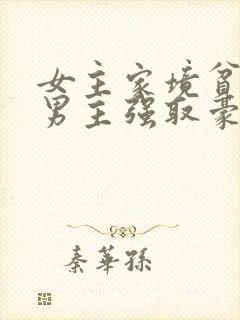 女主家境贫
男主强取豪
秦华孙